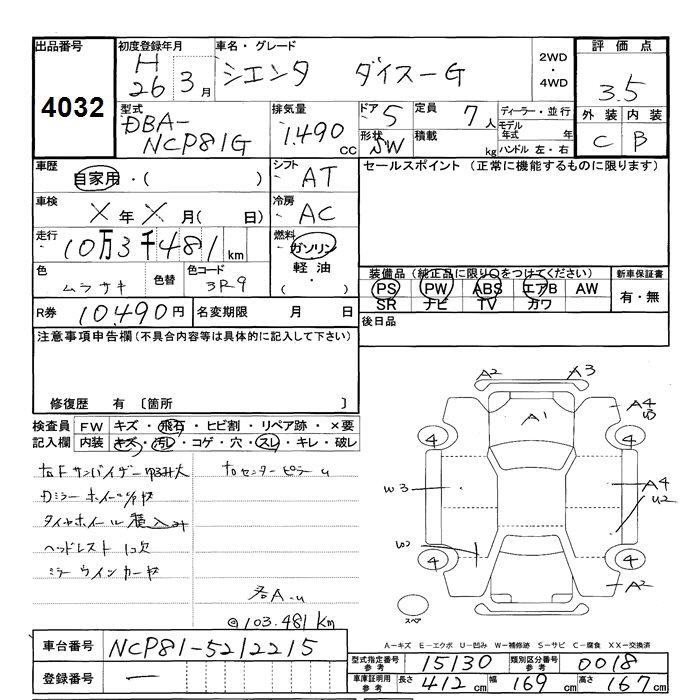 出品番号 4032
初度登録年月 H26 3月
車名・グレード シエンタ ダイス－G
2WD・4WD
評価点 3.5
外装 C 内装 B
型式 DBA-NCP81G
排気量 1.490 CC
ドア 5
形状 SW
定員 7人
積載 kg
ディーラー・並行
モデル年式 年
ハンドル 左・右
車歴 自家用・( )
シフト AT
セールスポイント (正常に機能するものに限ります)
車検 X年X月( 日)
冷房 AC
走行 10万3千481km
燃料 ガソリン 軽油 ・( )
色 ムラサキ 色替
色コード 3R9
装備品 (純正品に限り○をつけてください)
PS PW ABS エアB AW
SR ナビ TV カワ
新車保証書 有・無
R券 10,490円
名変期限 月 日
後日品
注意事項申告欄 (不具合内容等は具体的に記入して下さい)
修復歴 有 〔箇所 〕
検査員記入欄
FW キズ・飛石・ヒビ割・リペア跡・×要
内装 キズ・汚レ・コゲ・穴・スレ・キレ・破レ
ヘッドレスト 1コ欠
ミラーウインカーヤ
センターピラー u
各A.u
@103.481km
A2 A3
A1
A4
4 4
W3
A4
U2
4 4
A2
スペア
A－キズ E－エクボ U－凹み W－補修跡 S－サビ C－腐食 XX－交換済
車台番号 NCP81-5212215
登録番号 －
型式指定番号 参考 15130
類別区分番号 参考 0018
車庫証明用 参考 長さ 412cm 幅 169cm 高さ 167cm